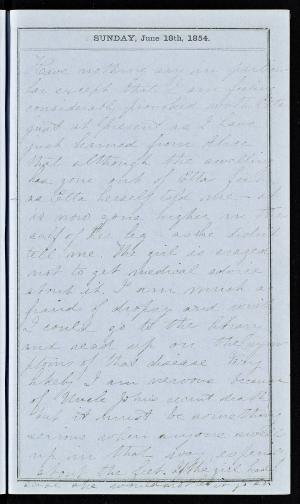 SUNDAY, June 18th, 1854.
Have nothing in partic-
ular except that I am feeling
considerable provoked with Etta
just at present as I have
just learned from Alice
that although the swelling
has gone out of Etta's feet
as Etta herself told me - it
is now going higher in the
calf of her leg as she didn't
tell me. The girl is
not to get medical advice
about it. I am much a-
fraid of dropsy and wish
I could go to the library
and read up on the sym-
ptoms of that disease. Very
likely I am nervous because
of Uncle John's recent death
but it must be something
serious when anyone swells
up in that way, especially
about the feet. If the girl had